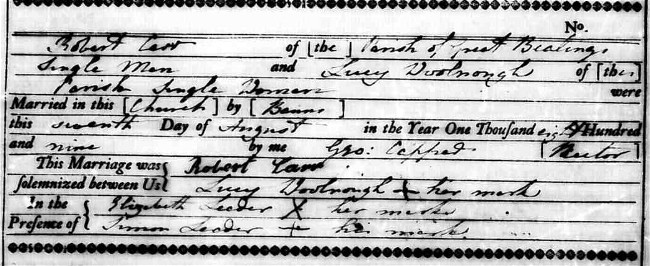 No.
Robert Carr of [the] Parish of Great Bealings
Single Man and Lucy Woolnough of [this]
Parish Single Woman were
Married in this [Church] by [Banns]
this seventh Day of August in the Year One Thousand eight Hundred
and nine by me Geo: [Rector]
This Marriage was Robert Carr
solemnized between Us Lucy Woolnough + her mark
In the Elizabeth Leader X her mark
Presence of Simon Leader + his mark